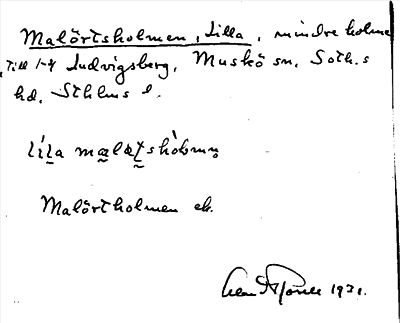 Malörtsholmen, Lilla, mindre holme
Till 1/4 Ludvigsberg, Muskö sn, Soth.s
hd, Sthlms l.
lìla malətshòlmən
Malörtholmen ek.
1931.